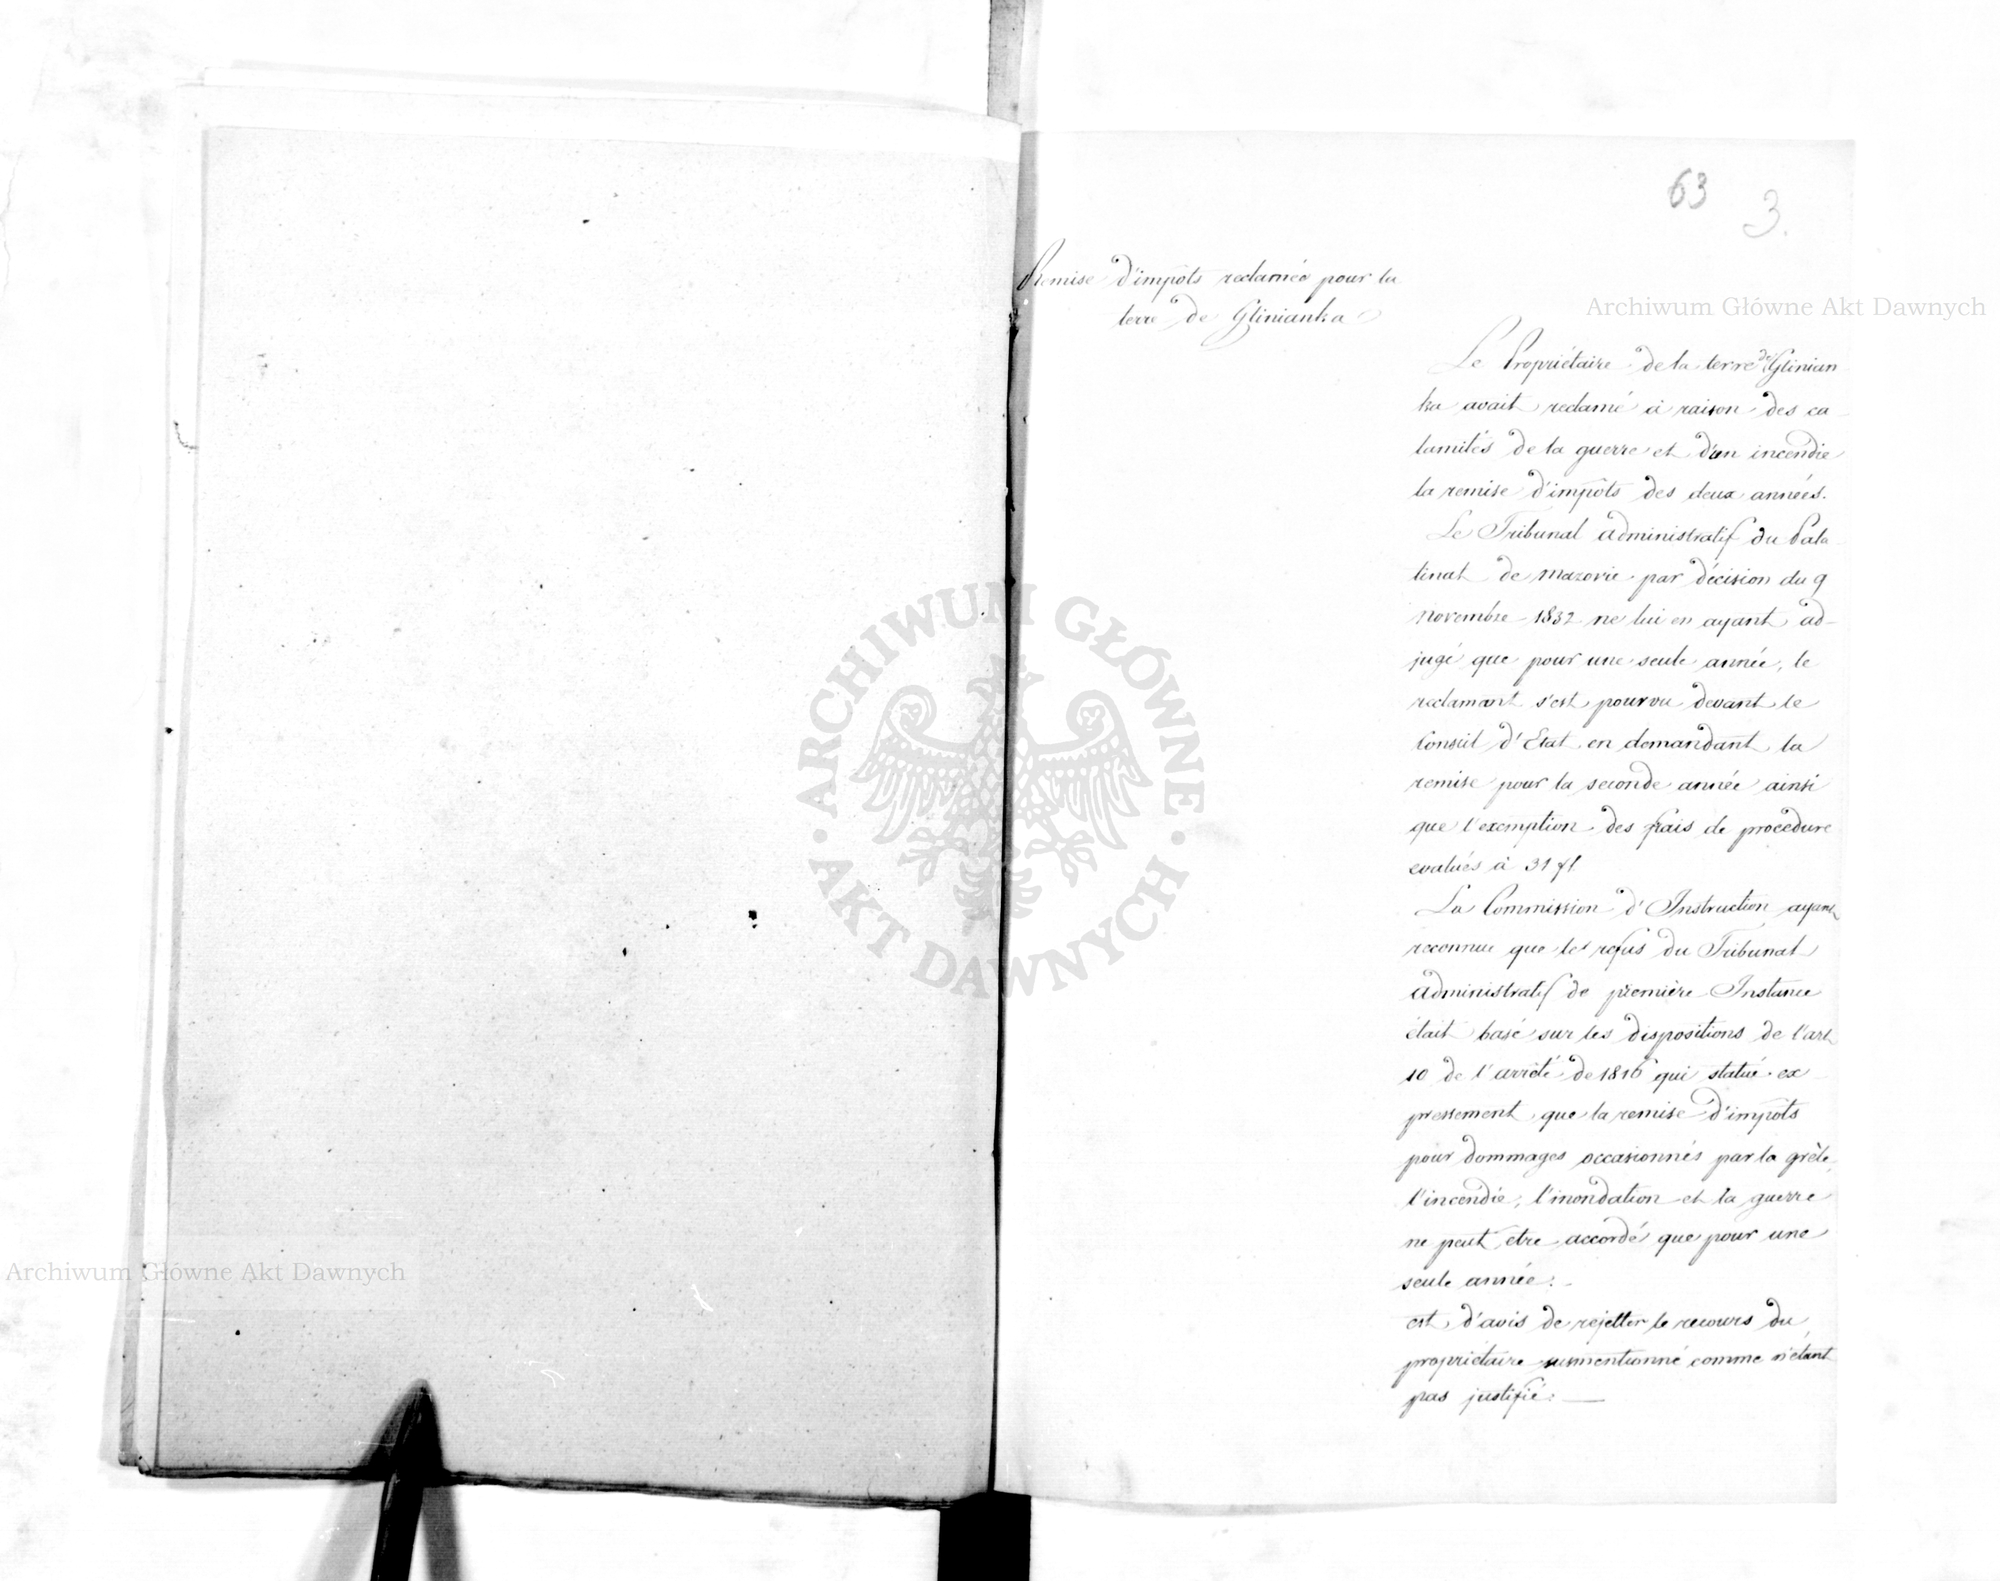 63
3.
Remise d'impots reclamée pour la
terre de Glinianka
Archiwum Główne Akt Dawnych
Le Propriétaire de la terre de Glinian
ka avait reclamé à raison des ca
lamités de la guerre et d'un incendie
la remise d'impôts des deux années.
Le Tribunal administratif du Pala
tinat de Mazovie par décision du 9
novembre 1832 ne lui en ayant ad-
jugé que pour une seule année, le
reclamant s'est pourvu devant le
Conseil d'Etat en demandant la
remise pour la seconde année ainsi
que l'exemption des frais de procedure
evalués à 31 fl.
La Commission d'Instruction ayant
reconnu que le refus du Tribunal
administratif de première Instance
était basé sur les dispositions de l'art
10 de l'arrêté de 1816 qui statue ex
pressement que la remise d'impots
pour dommages occasionnés par la grêle,
l'incendie, l'inondation et la guerre
ne peut etre accordé que pour une
seule année:
est d'avis de rejetter le recours du
propriétaire susmentionné comme n'étant
pas justifié: —
ARCHIWUM GŁÓWNE
AKT DAWNYCH
Archiwum Główne Akt Dawnych